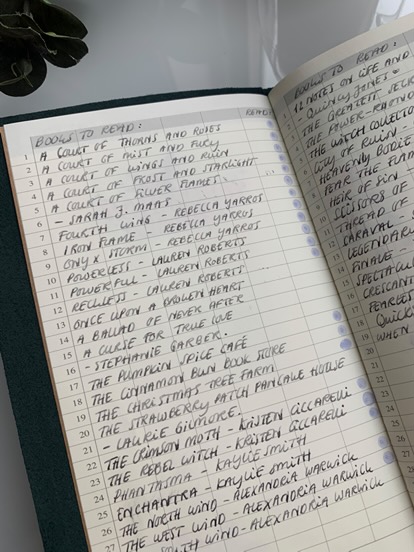 BOOKS TO READ:
READ:
1 A COURT OF THORNS AND ROSES
2 A COURT OF MIST AND FURY
3 A COURT OF WINGS AND RUIN
4 A COURT OF FROST AND STARLIGHT
5 A COURT OF SILVER FLAMES.
6 - SARAH J. MAAS
7 FOURTH WING - REBECCA YARROS
8 IRON FLAME - REBECCA YARROS
9 ONYX STORM - REBECCA YARROS
10 POWERLESS - LAUREN ROBERTS
11 POWERFUL - LAUREN ROBERTS
12 RECKLESS - LAUREN ROBERTS
13 ONCE UPON A BROKEN HEART
14 A BALLAD OF NEVER AFTER
15 A CURSE FOR TRUE LOVE
16 - STEPHANIE GARBER.
17 THE PUMPKIN SPICE CAFÉ
18 THE CINNAMON BUN BOOK STORE
19 THE CHRISTMAS TREE FARM
20 THE STRAWBERRY PATCH PANCAKE HOUSE
21 - LAURIE GILMORE.
22 THE CRIMSON MOTH - KRISTEN CICCARELLI
23 THE REBEL WITCH - KRISTEN CICCARELLI
24 PHANTASMA - KAYLIE SMITH
25 ENCHANTRA - KAYLIE SMITH
26 THE NORTH WIND - ALEXANDRIA WARWICK
27 THE WEST WIND - ALEXANDRIA WARWICK
WIND - ALEXANDRIA WARWICK
BOOKS TO READ:
12 NOTES ON LIFE AND
- QUINCY JONES
THE GREATEST
THE POWER
THE WITCH COLLECTO
CITY OF RUIN -
HEAVENLY BODIE
FEAR THE FLAM
HEIR OF SIN
SCISSORS OF
THREAD OF
CARAVAL -
LEGENDAR
FINALE
SPECTACUL
CRESCENT
FEARLES
QUICK
WHEN